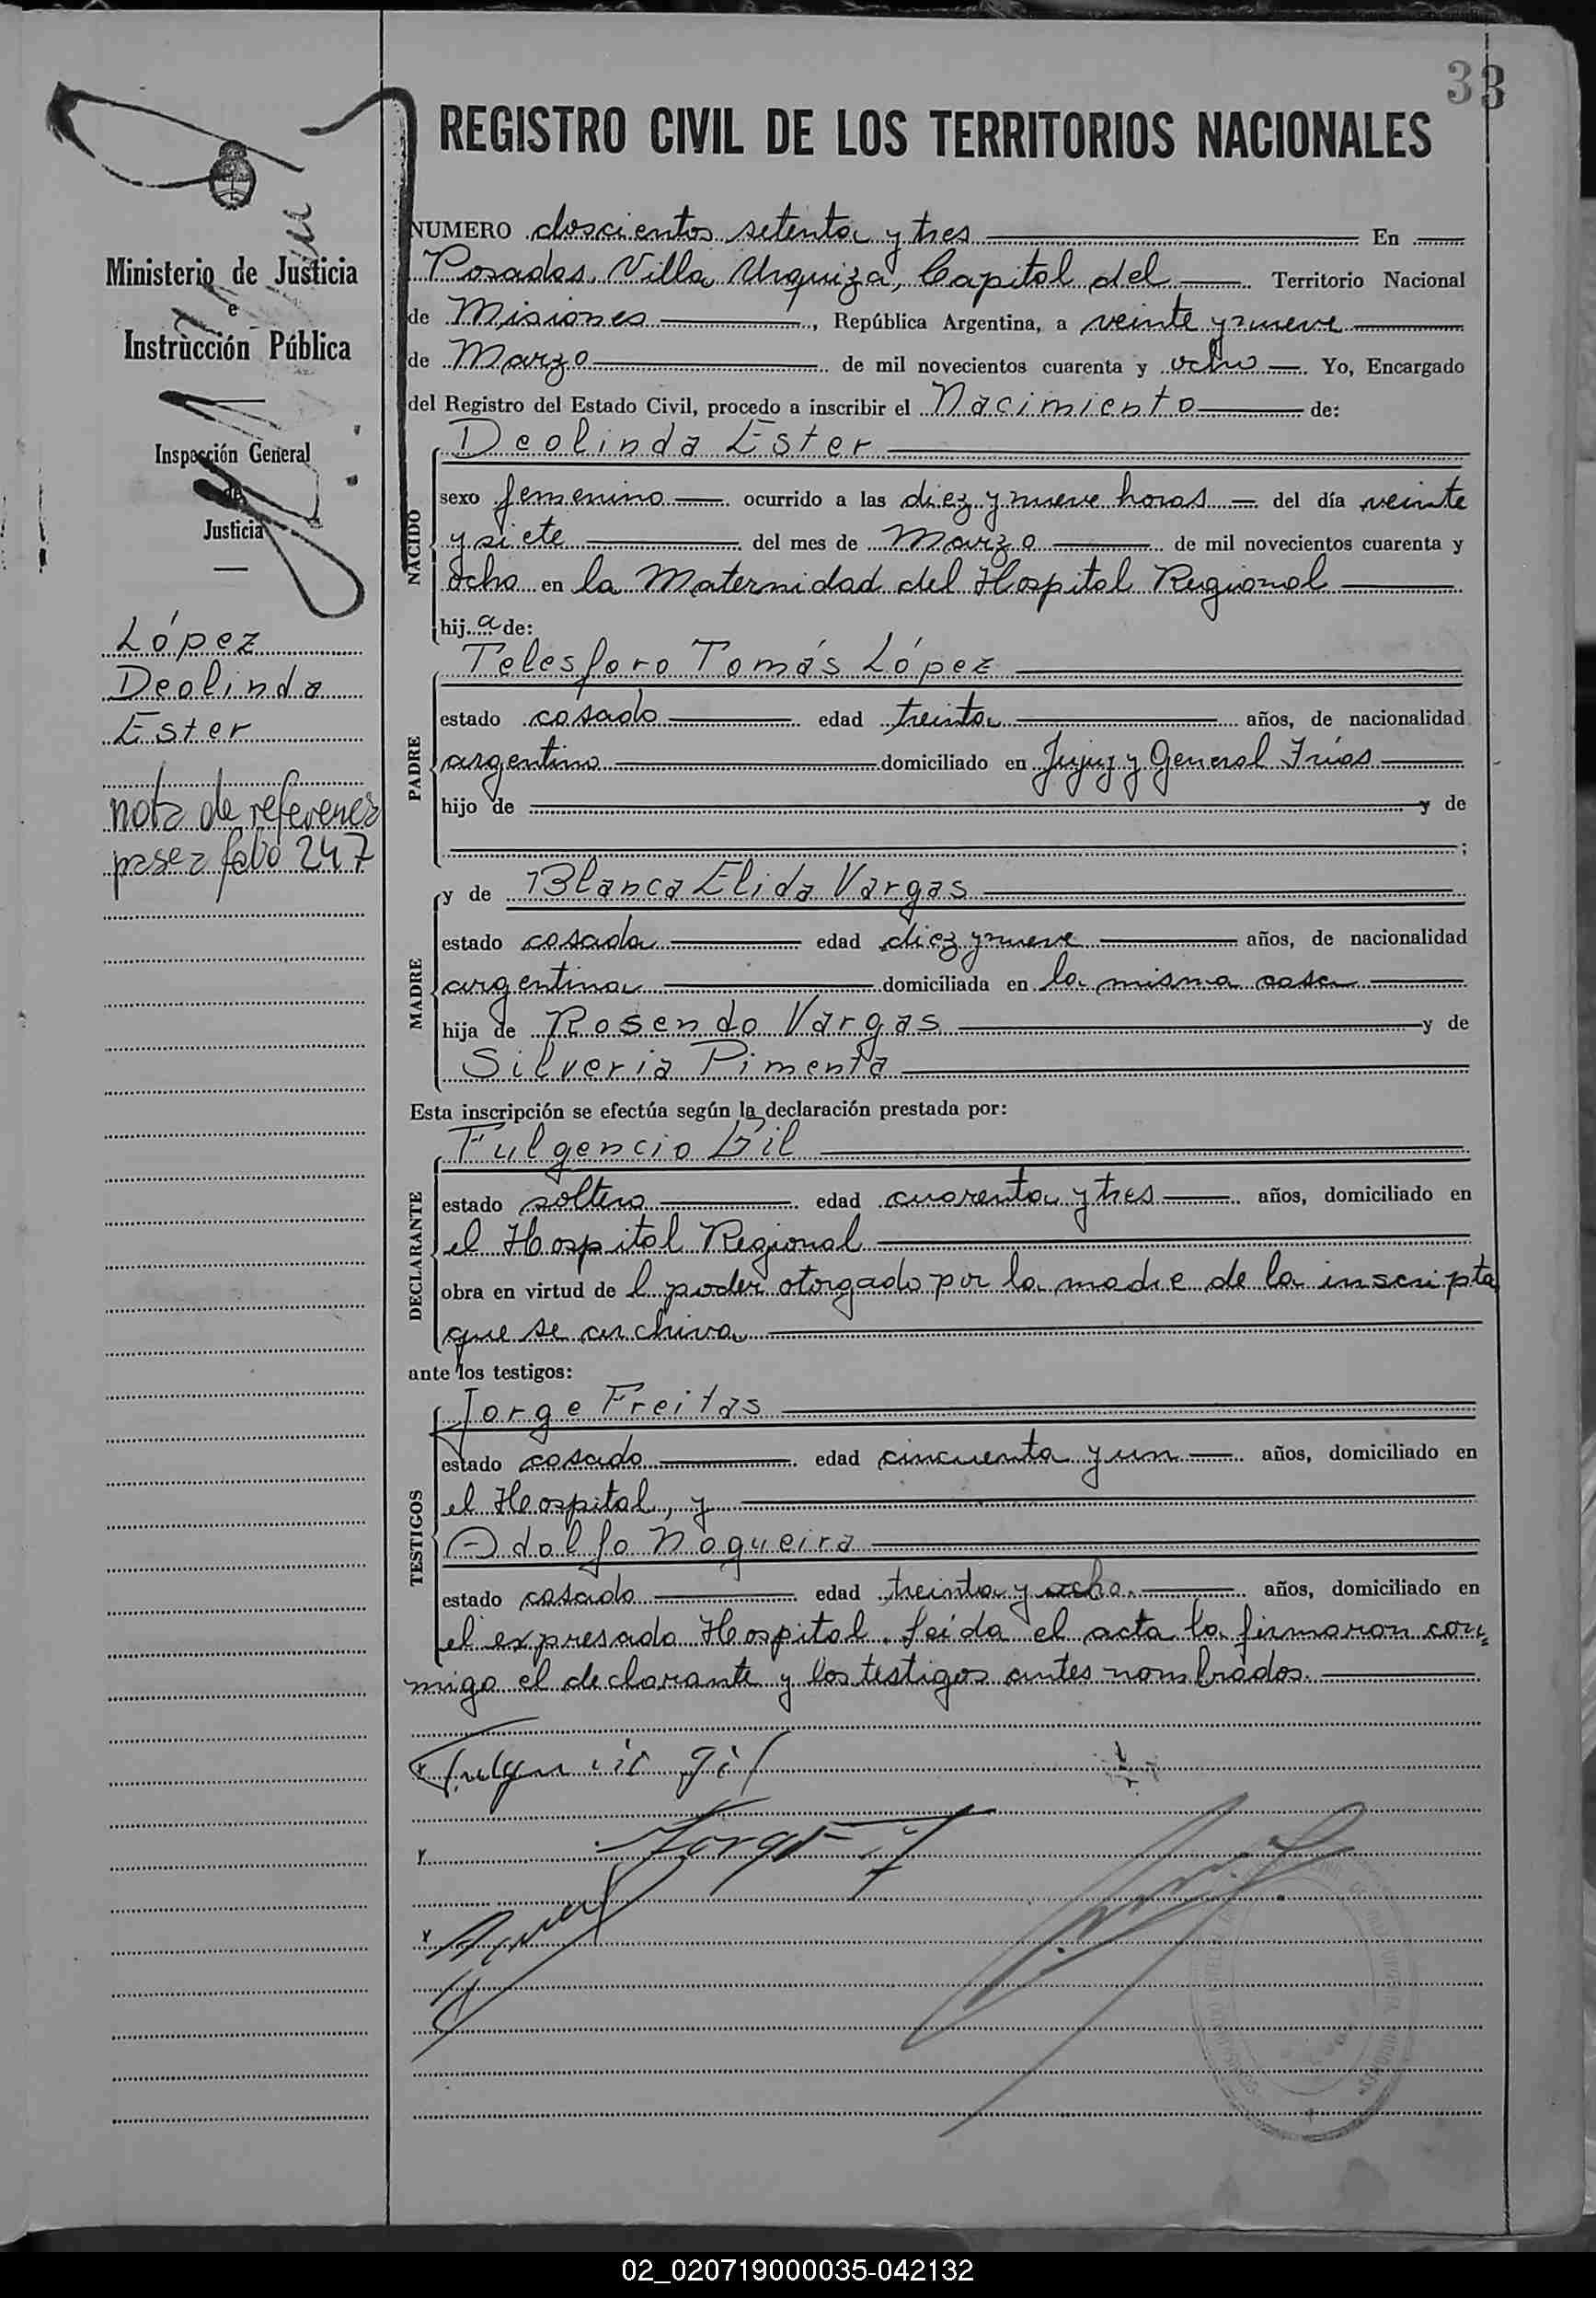 33
REGISTRO CIVIL DE LOS TERRITORIOS NACIONALES
Ministerio de Justicia
e
Instrucción Pública
Inspección General
de
Justicia
López
Deolinda
Ester
nota de referenca
pase a folio 247
NUMERO doscientos setenta y tres En
Posadas, Villa Urquiza, Capital del Territorio Nacional
de Misiones, República Argentina, a veinte y nueve
de Marzo de mil novecientos cuarenta y ocho Yo, Encargado
del Registro del Estado Civil, procedo a inscribir el Nacimiento de:
NACIDO
Deolinda Ester
sexo femenino ocurrido a las diez y nueve horas del día veinte
y siete del mes de Marzo de mil novecientos cuarenta y
ocho en la Maternidad del Hospital Regional
hija de:
PADRE
Telesforo Tomás López
estado casado edad treinta años, de nacionalidad
argentino domiciliado en Jujuy y General Frías
hijo de y de
;
MADRE
y de Blanca Elida Vargas
estado casada edad diez y nueve años, de nacionalidad
argentina domiciliada en la misma casa
hija de Rosendo Vargas y de
Silveria Pimenta
Esta inscripción se efectúa según la declaración prestada por:
DECLARANTE
Fulgencio Gil
estado soltero edad cuarenta y tres años, domiciliado en
el Hospital Regional
obra en virtud de l poder otorgado por la madre de la inscripta
que se archiva
ante los testigos:
TESTIGOS
Jorge Freitas
estado casado edad cincuenta y un años, domiciliado en
el Hospital, y
Adolfo Nogueira
estado casado edad treinta y ocho años, domiciliado en
el expresado Hospital. Leída el acta la firmaron con=
migo el declarante y los testigos antes nombrados.
Fulgencio Gil
Jorge F
02_020719000035-042132